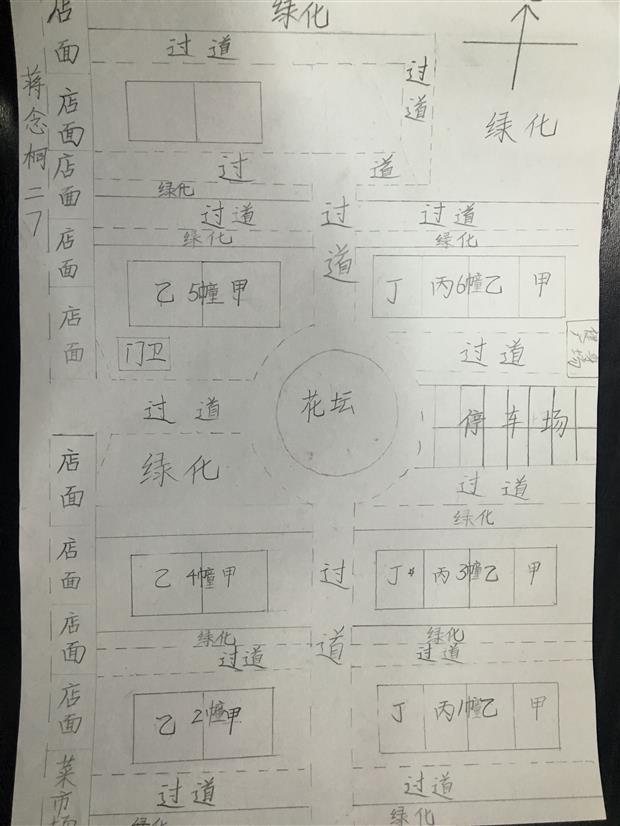 店面
绿化
过道
过道
蒋念桐二7
店面
绿化
店面
过道
绿化
过道
过道
过道
店面
绿化
绿化
乙 5幢 甲
丁 丙 6幢 乙 甲
店面
门卫
过道
过道
花坛
停车场
绿化
店面
过道
绿化
店面
乙 4幢 甲
过道
丁 丙 3幢 乙 甲
店面
绿化
绿化
过道
过道
店面
乙 2幢 甲
丁 丙 1幢 乙 甲
菜市场
过道
过道
绿化
绿化